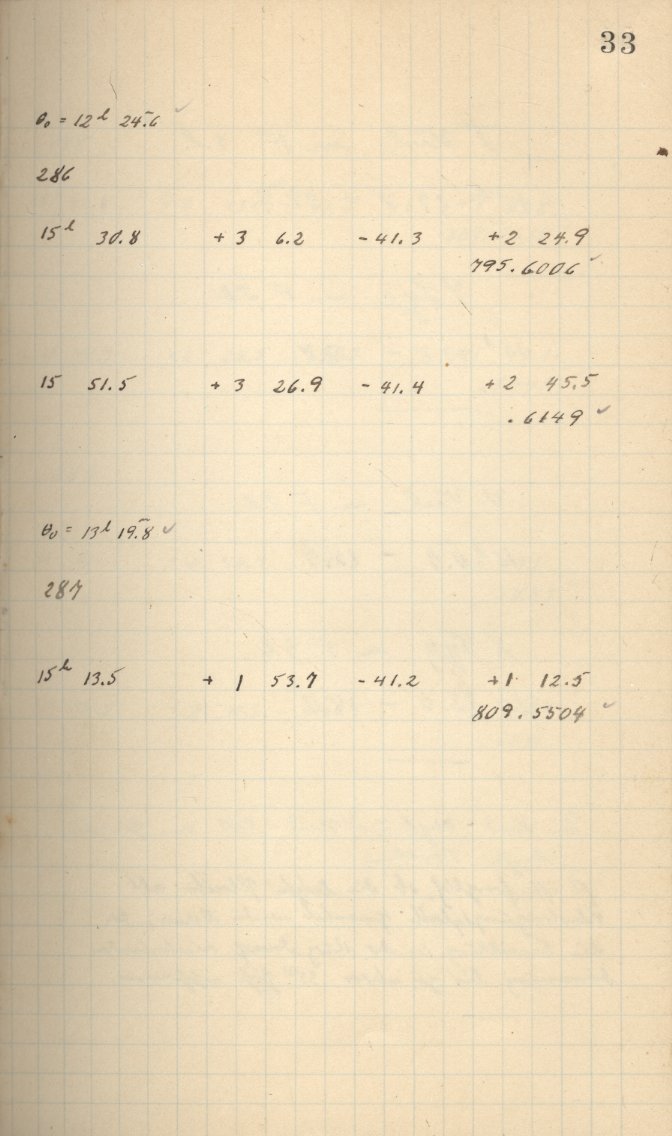 33
θ₀ = 12ʰ 24.6 ✓
286
15ʰ 30.8 + 3 6.2 - 41.3 + 2 24.9
795.6006 ✓
15 51.5 + 3 26.9 - 41.4 + 2 45.5
.6149 ✓
θ₀ = 13ʰ 19.8 ✓
287
15ʰ 13.5 + 1 53.7 - 41.2 + 1 12.5
809.5504 ✓